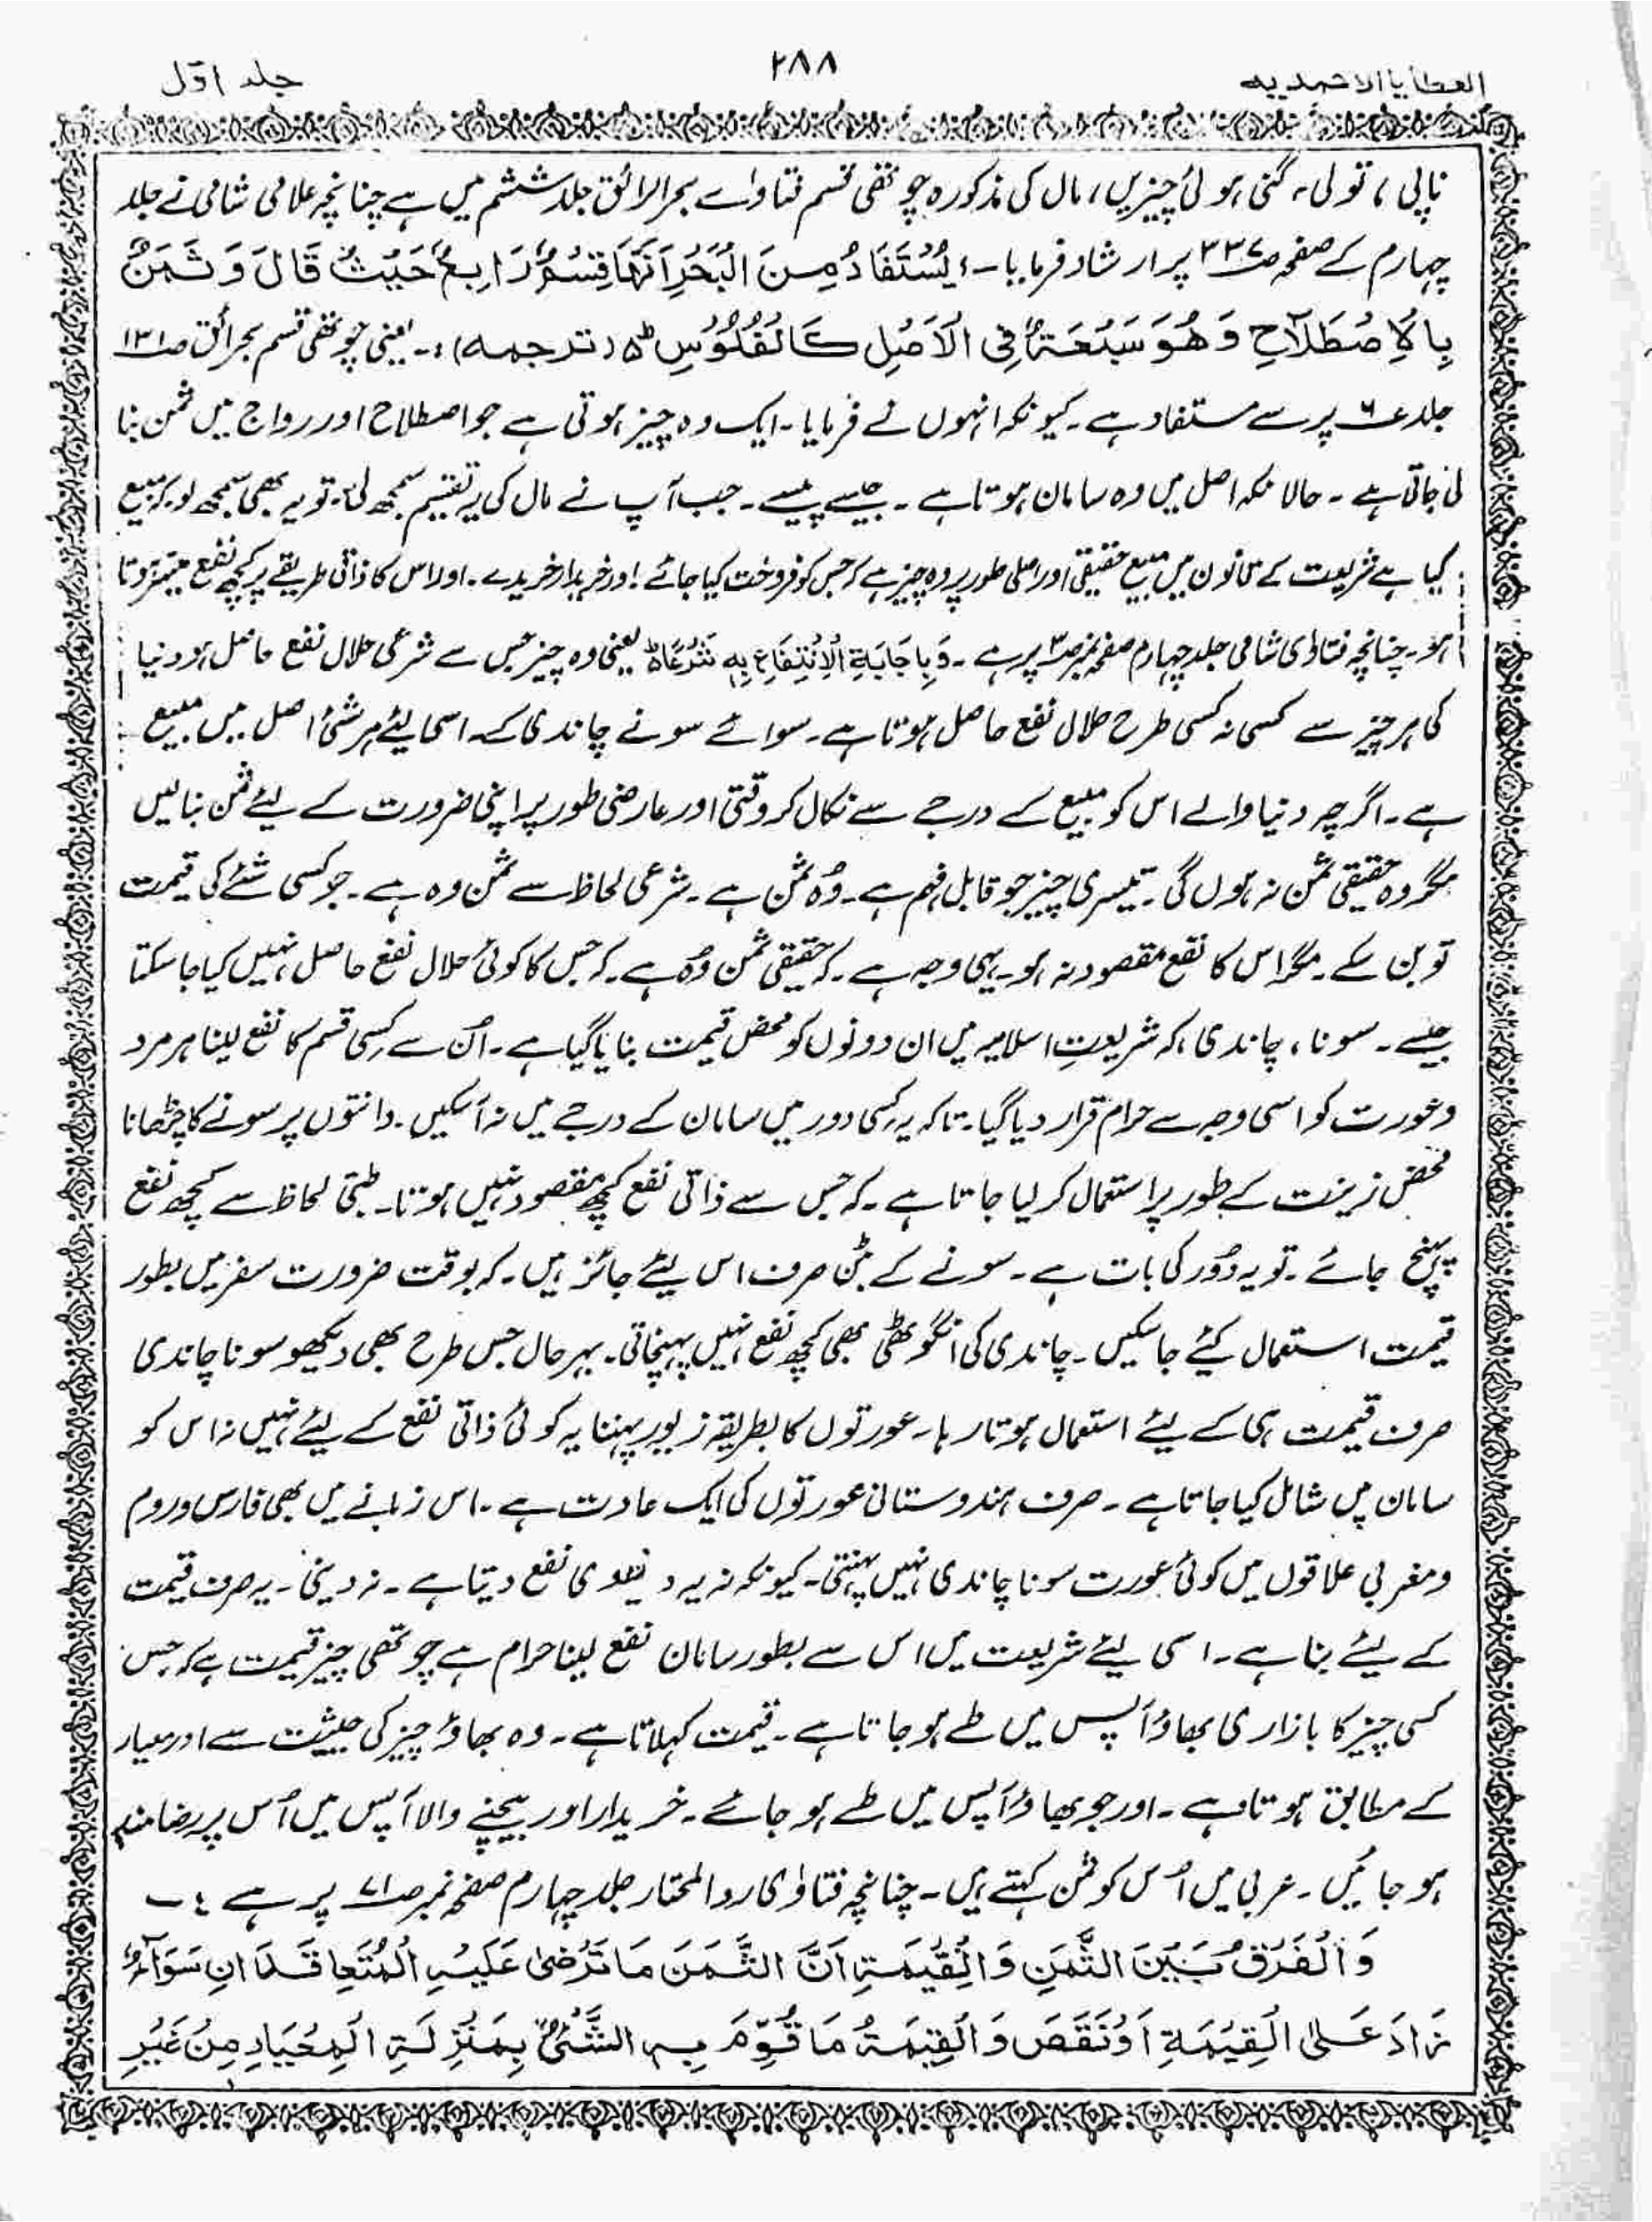 العطایا الاحمدیہ
۲۸۸
جلد اوّل
ناپی، تولی، گنی ہوئی چیزیں، مال کی مذکورہ چوتھی قسم فتاواے بحرالرائق جلد ششم میں ہے چنانچہ علامی شامی نے جلد
چہارم کے صفحہ ص۳۳۷ پر ارشاد فرمایا۔: یُسْتَفَادُ مِنَ الْبَحْرِ اَنَّهَا قِسْمٌ رَابِعٌ حَیْثُ قَالَ وَ ثَمَنٌ
بِالْاِصْطَلَاحِ وَهُوَ سَبْعَةٌ فِی الْاَصْلِ كَالْفُلُوْسِ ۵ (ترجمہ):۔ یعنی چوتھی قسم بحرائق ص۱۳۱
جلد ع۶ پر سے مستفاد ہے۔ کیونکہ انہوں نے فرمایا۔ ایک وہ چیز ہوتی ہے جو اصطلاح اور رواج میں ثمن بنا
لی جاتی ہے۔ حالانکہ اصل میں وہ سامان ہوتا ہے۔ جیسے پیسے۔ جب آپ نے مال کی یہ تقسیم سمجھ لی۔ تو یہ بھی سمجھ لو کہ مبیع
کیا ہے شریعت کے قانون میں مبیع حقیقی اور اصلی طور پر وہ چیز ہے کہ جس کو فروخت کیا جائے اور خریدار خریدے۔ اور اس کا ذاتی طریقے پر کچھ نفع
ہو۔ چنانچہ فتاوٰی شامی جلد چہارم صفحہ نمبر ص۳ پر ہے۔ الْاِنْتِفَاعِ بِهٖ شَرْعًا ۵ یعنی وہ چیز جس سے شرعی حلال نفع حاصل ہو دنیا
کی ہر چیز سے کسی نہ کسی طرح حلال نفع حاصل ہوتا ہے۔ سوائے سونے چاندی کے۔ اسی لیئے ہر شئ اصل میں مبیع
ہے۔ اگرچہ دنیا والے اس کو مبیع کے درجے سے نکال کر وقتی اور عارضی طور پر اپنی ضرورت کے لیئے ثمن بنالیں
مگر وہ حقیقی ثمن نہ ہوں گی۔ تیسری چیز جو قابل فہم ہے۔ وُہ ثمن ہے۔ شرعی لحاظ سے ثمن وہ ہے۔ جو کسی شئے کی قیمت
تو بن سکے۔ مگر اس کا نفع مقصود نہ ہو۔ یہی وجہ ہے۔ کہ حقیقی ثمن وُہ ہے۔ کہ جس کا کوئی حلال نفع حاصل نہیں کیا جا سکتا
جیسے۔ سونا، چاندی، کہ شریعتِ اسلامیہ میں ان دونوں کو محض قیمت بنایا گیا ہے۔ اُن سے کسی قسم کا نفع لینا ہر مرد
و عورت کو اسی وجہ سے حرام قرار دیا گیا۔ تاکہ یہ کسی دور میں سامان کے درجے میں نہ آسکیں۔ دانتوں پر سونے کا چڑھانا
محض زینت کے طور پر استعمال کر لیا جاتا ہے۔ کہ جس سے ذاتی نفع کچھ مقصود نہیں ہوتا۔ طبّی لحاظ سے کچھ نفع
پہنچ جائے۔ تو یہ دُور کی بات ہے۔ سونے کے بٹن صرف اس لیئے جائز ہیں۔ کہ بوقت ضرورت سفر میں بطور
قیمت استعمال کیئے جا سکیں۔ چاندی کی انگوٹھی بھی کچھ نفع نہیں پہنچاتی۔ بہرحال جس طرح بھی دیکھو سونا چاندی
صرف قیمت ہی کے لیئے استعمال ہوتا رہا۔ عورتوں کا بطریقہ زیور پہننا یہ کوئی ذاتی نفع کے لیئے نہیں نہ اس کو
سامان میں شامل کیا جاتا ہے۔ صرف ہندوستانی عورتوں کی ایک عادت ہے۔ اس زمانے میں بھی فارس و روم
و مغربی علاقوں میں کوئی عورت سونا چاندی نہیں پہنتی۔ کیونکہ نہ یہ دنیوی نفع دیتا ہے۔ نہ دینی۔ یہ صرف قیمت
کے لیئے بنا ہے۔ اسی لیئے شریعت میں اس سے بطور سامان نفع لینا حرام ہے چوتھی چیز قیمت ہے کہ جس
کسی چیز کا بازاری بھاؤ آپس میں طے ہو جاتا ہے۔ قیمت کہلاتا ہے۔ وہ بھاؤ چیز کی حیثیت سے اور معیار
کے مطابق ہوتا ہے۔ اور جو بھاؤ آپس میں طے ہو جائے۔ خریدار اور بیچنے والا آپس میں اُس پر رضامند
ہو جائیں۔ عربی میں اُس کو ثمن کہتے ہیں۔ چنانچہ فتاوٰی ردالمحتار جلد چہارم صفحہ نمبر ص۷۱ پر ہے :۔
وَالْفَرْقُ بَیْنَ الثَّمَنِ وَالْقِیْمَةِ اَنَّ الثَّمَنَ مَا تَرْضٰی عَلَیْهِ الْمُتَعَاقِدَانِ سَوَآءٌ
زَادَ عَلَی الْقِیْمَةِ اَوْ نَقَصَ وَالْقِیْمَةُ مَا قُوِّمَ بِهِ الشَّیْئُ بِمَنْزِلَةِ الْمِعْیَارِ مِنْ غَیْرِ